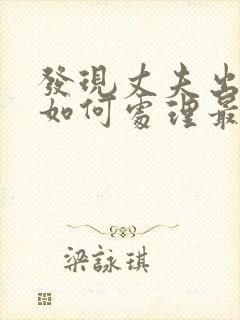 發現丈夫出
如何處理最
梁詠琪